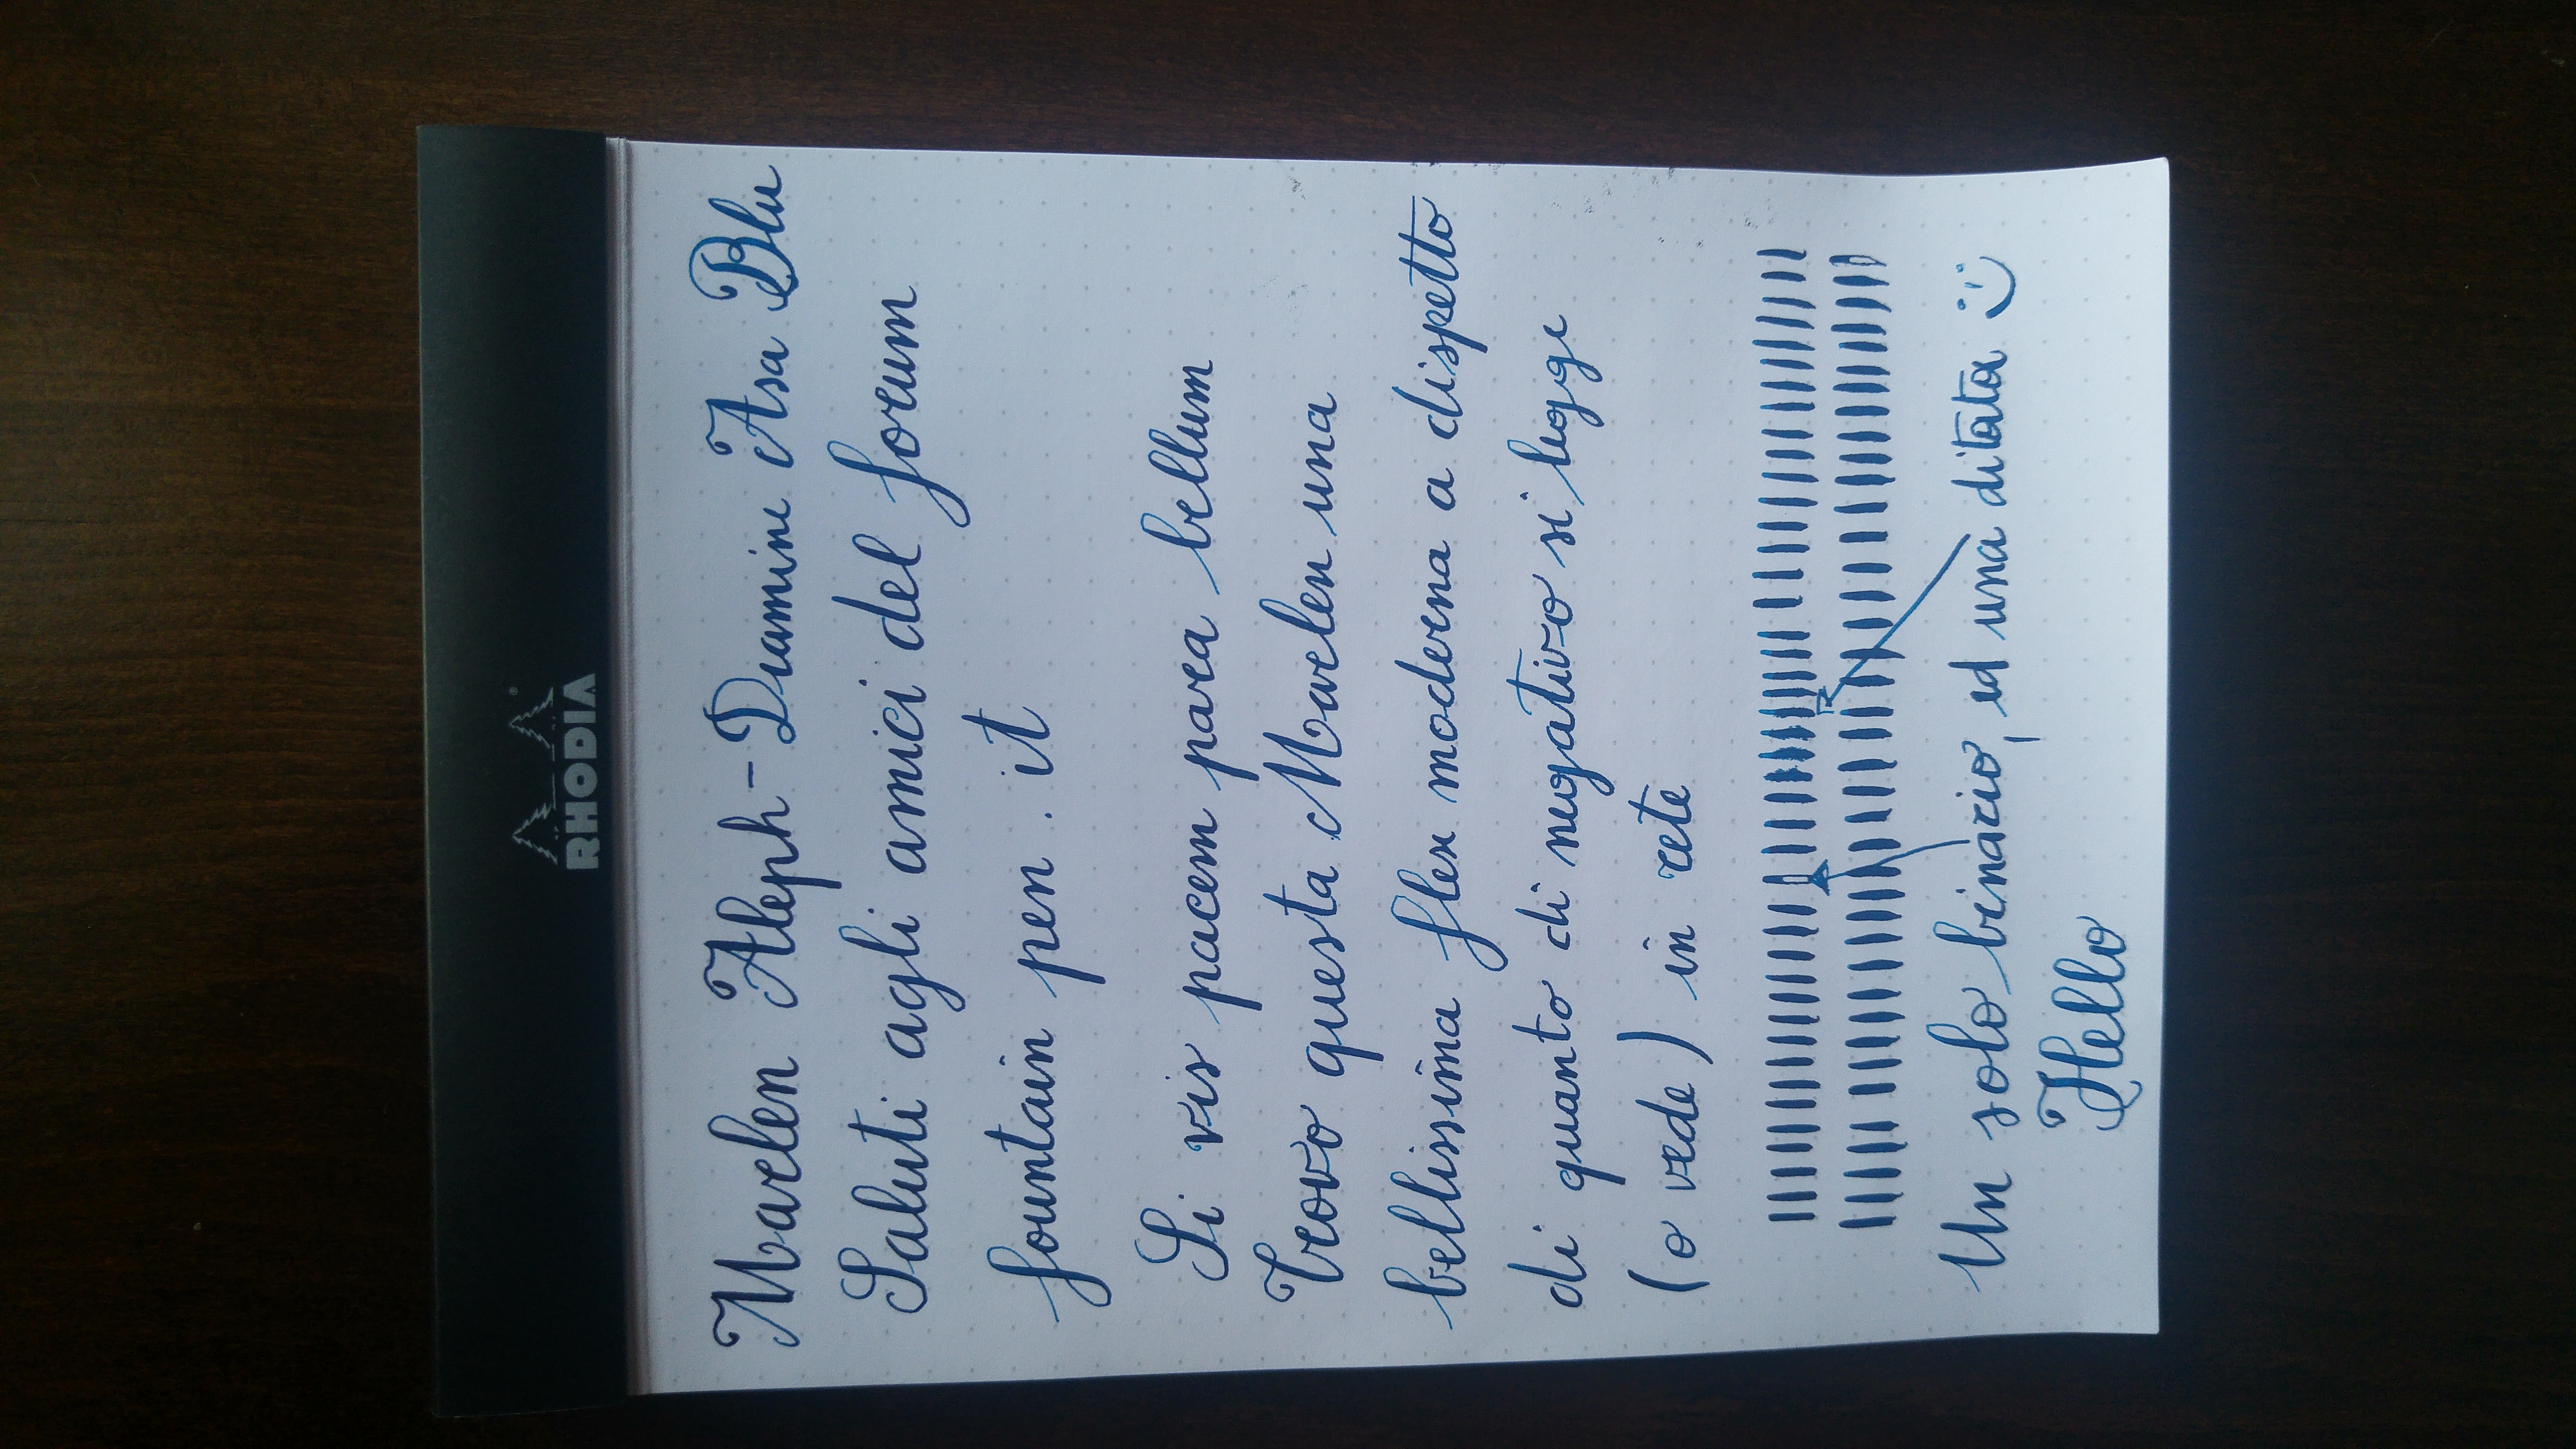 RHODIA
Marlen Aleph - Diamine Asa Blu
Saluti agli amici del forum
fountain pen . it
Si vis pacem para bellum
Trovo questa Marlen una
bellissima flex moderna a dispetto
di quanto di negativo si legge
(o vede) in rete
Un solo binario, ed una ditata :)
Hello